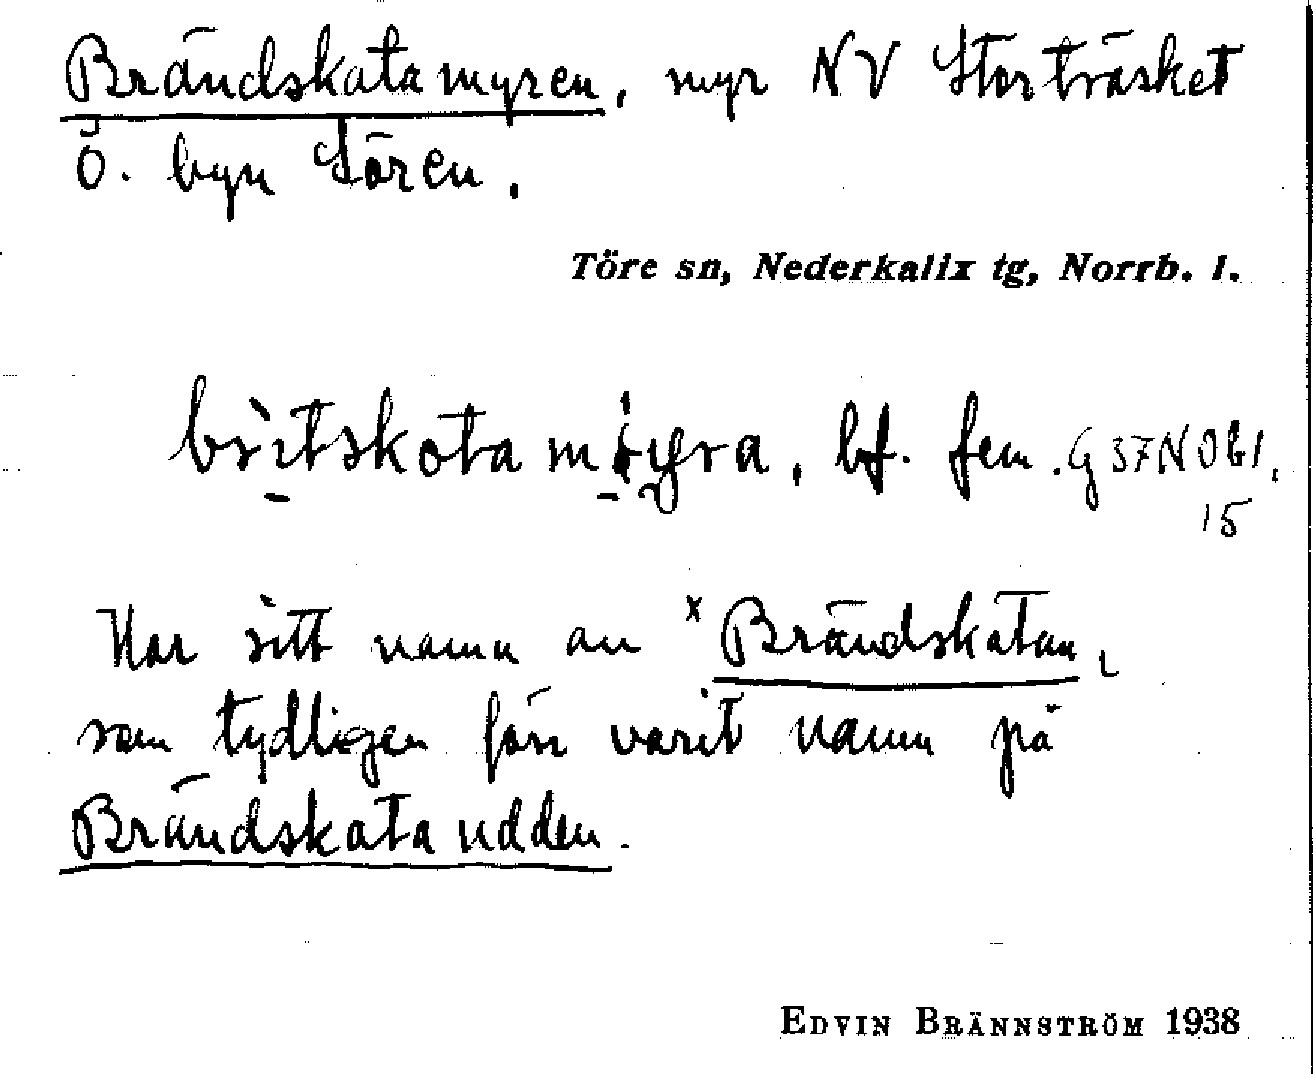 Brändskatamyren, myr NV Storträsket
Ö. byn Sören.
Töre sn, Nederkalix tg, Norrb. l.
bf. fem. G37N061,
15
Har sitt namn av *Brändskatan,
som tydligen förr varit namn på
Brändskataudden.
EDVIN BRÄNNSTRÖM 1938